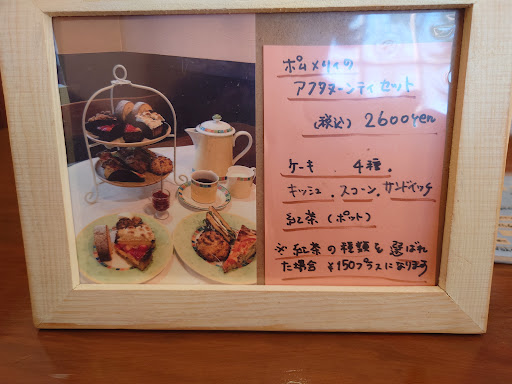 ポムメリィの
アフタヌーンティセット
(税込) 2600yen
ケーキ 4種.
キッシュ.スコーン.サンドイッチ
紅茶(ポット)
※紅茶の種類を選ばれ
た場合 ¥150プラスになります